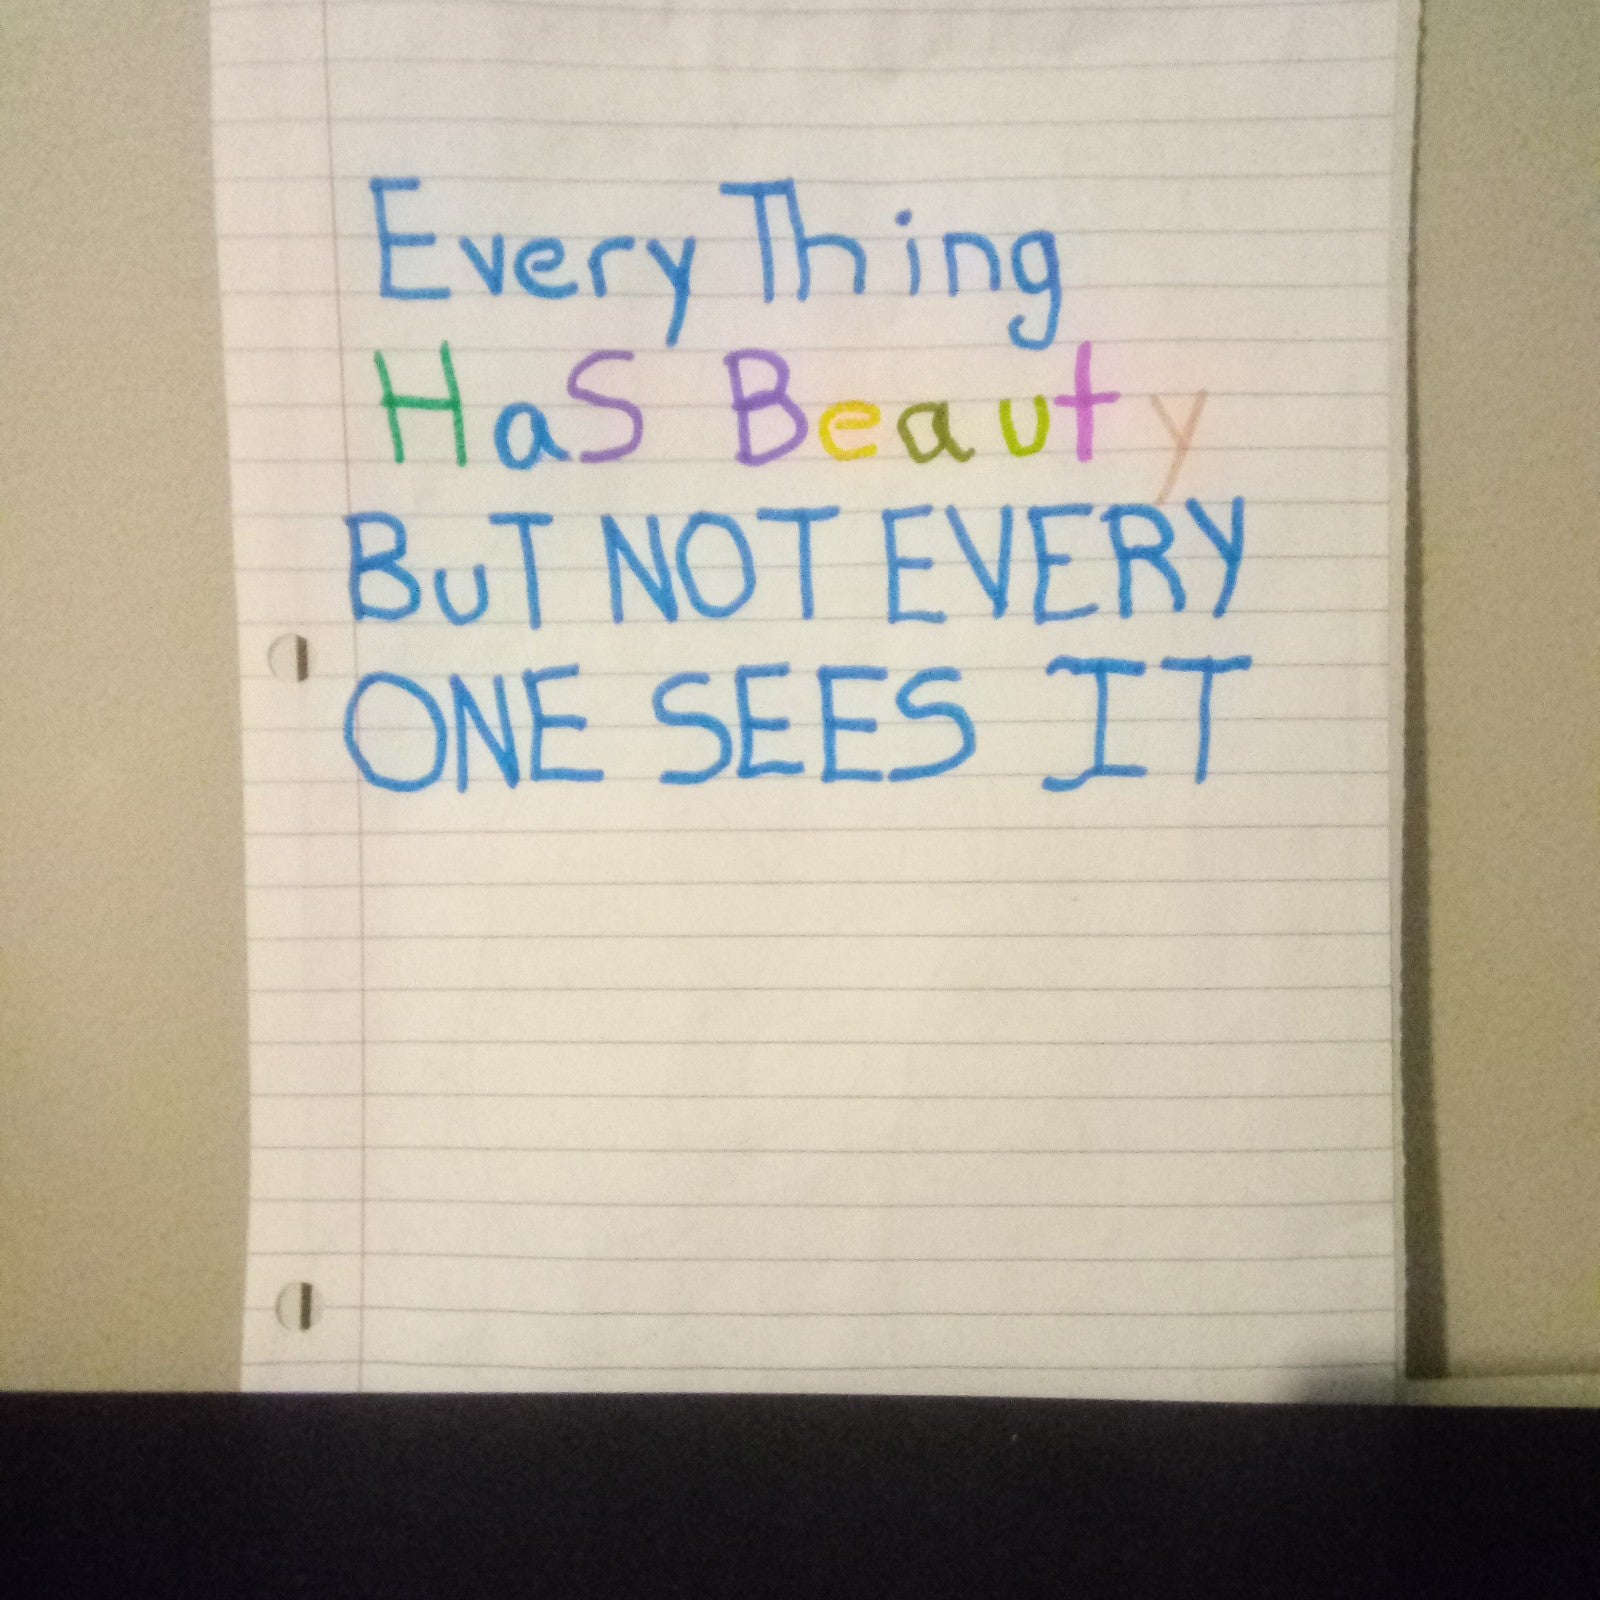 EveryThing
HaS Beauty
BuT NOT EVERY
ONE SEES IT